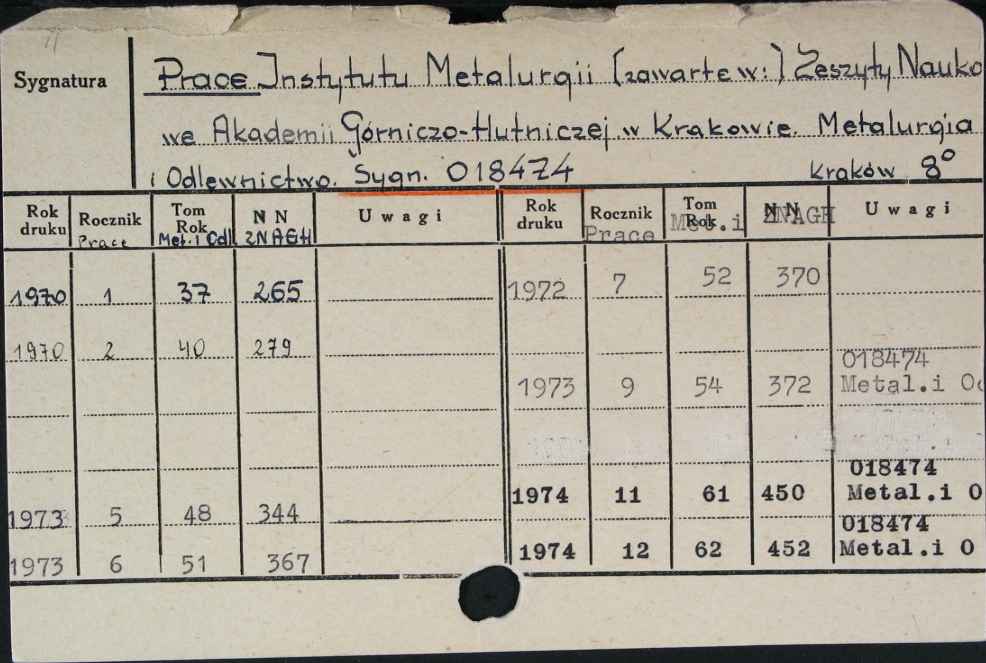 Sygnatura
Prace Instytutu Metalurgii (zawarte w:) Zeszyty Nauko
we Akademii Górniczo-Hutniczej w Krakowie. Metalurgia
i Odlewnictwo. Sygn. 018474 Kraków 8°
Rok druku Rocznik Prace Tom Rok Met. i Odl NN ZNAGH Uwagi Rok druku Rocznik Prace Tom Rok Met.i NN ZNAGH Uwagi
1970 1 37 265 1972 7 52 370
1970 2 40 279
018474
1973 9 54 372 Metal.i Od
018474
1974 11 61 450 Metal.i O
1973 5 48 344
018474
1974 12 62 452 Metal.i O
1973 6 51 367